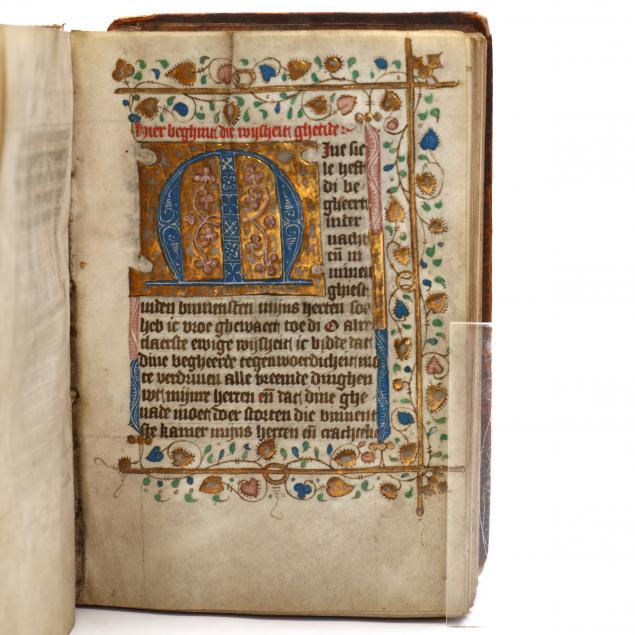 Hier beghint die wijsheit ghetide
M Ine sie
le heft
di be
gheert
inter
nacht
en̄ in
minen
ghiest
inden binnensten mijns herten soe
heb ic vroe ghewaect toe di O alre
claerste ewige wijsheit ic bidde dat
dine begheerde tegenwoerdicheit mo
te verdriuen alle vreemde dinghen
wt mijnre herten en̄ dat dine ghe
nade moet doer storten die binnent
ste kamer mijns herten en̄ crachteli